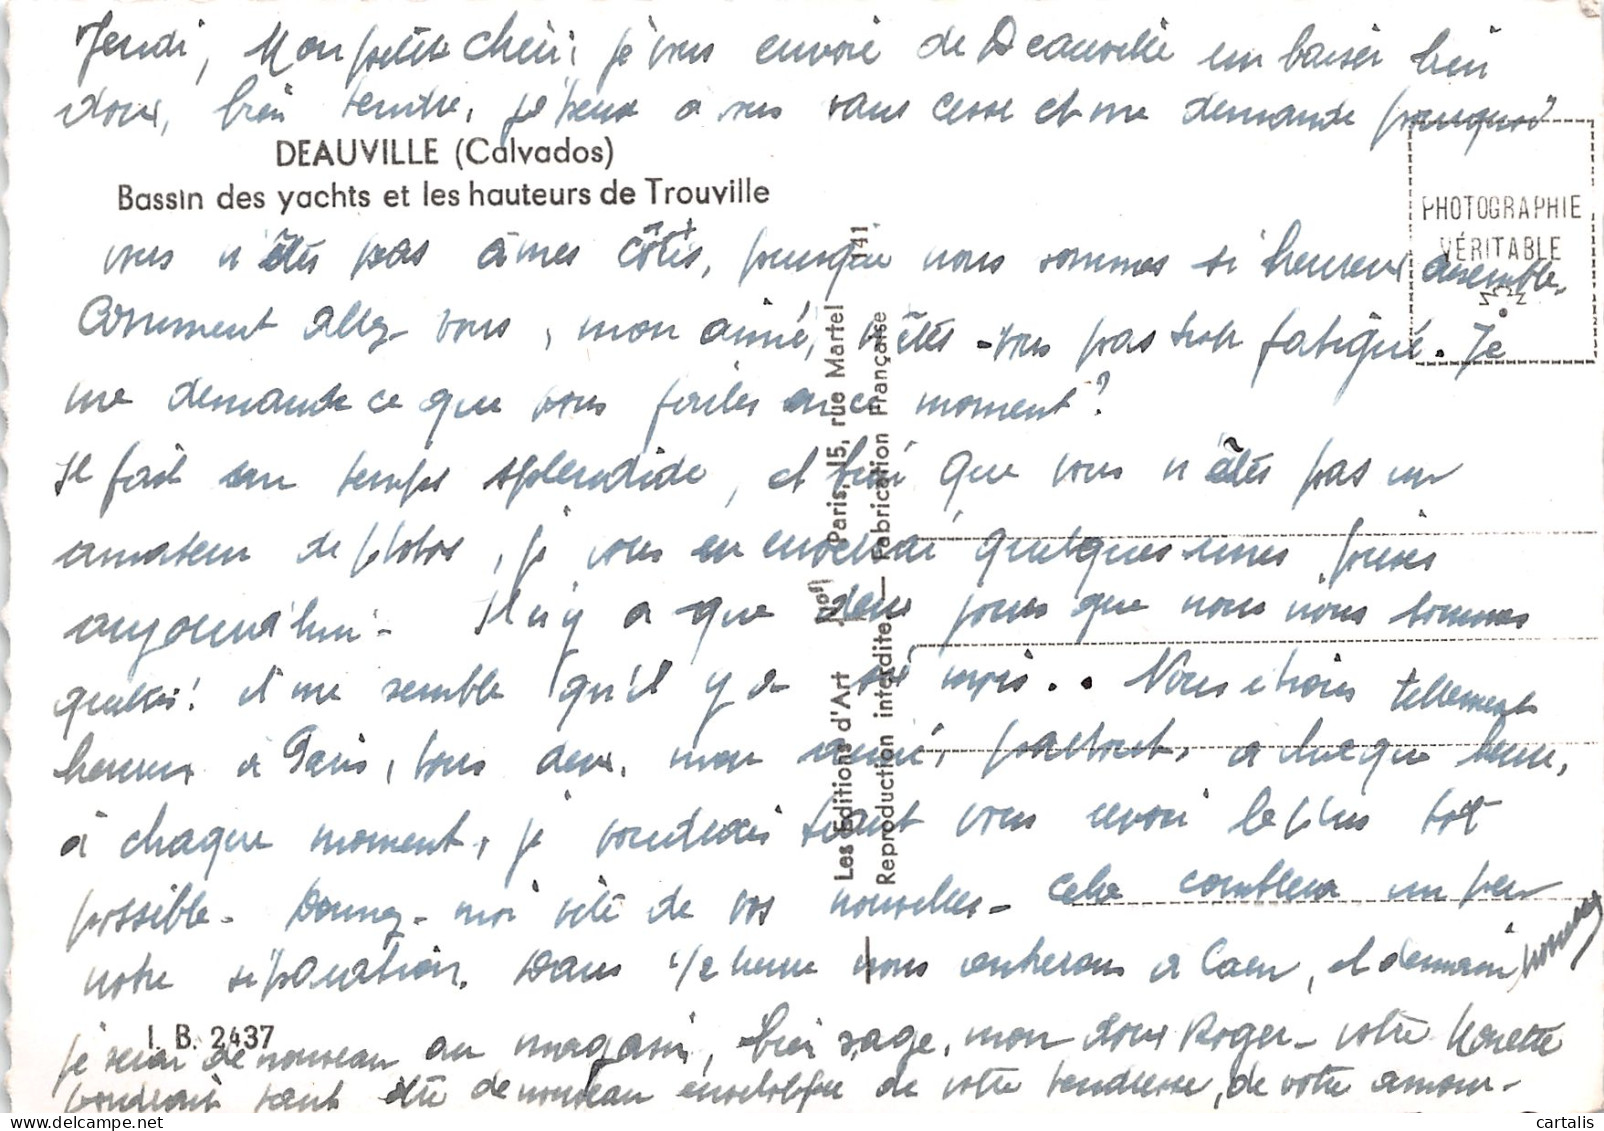 Jeudi, Mon petit chéri, je vous envoie de Deauville un baiser bien
doux, bien tendre, je pense a vous sans cesse et me demande pourquoi
DEAUVILLE (Calvados)
Bassin des yachts et les hauteurs de Trouville
PHOTOGRAPHIE
VÉRITABLE
vous n'êtes pas à mes côtés, puisque nous sommes si heureux ensemble.
Comment allez-vous, mon aimé, n'êtes-vous pas trop fatigué. Je
me demande ce que vous faites en ce moment?
Il fait un temps splendide, et bien que vous n'êtes pas un
amateur de photos, je vous en enverrai quelques unes prises
aujourd'hui - Il n'y a que deux jours que nous nous sommes
quittés! et me semble qu'il y a six mois.. Nous étions tellement
heureux a Paris, tous deux, mon aimé, partout, a chaque heure,
à chaque moment, je voudrais tant vous revoir le plus tôt
possible - Donnez-moi vite de vos nouvelles - cela comblera un peu
notre séparation. Dans 1/2 heure nous rentrerons a Caen, et demain
I. B. 2437
je serai de nouveau au magasin, bien sage, mon doux Roger - votre
voudrait tant être de nouveau enveloppée de votre tendresse, de votre amour -
Les Editions d'Art Paris, 15, rue Martel
Reproduction interdite — Fabrication Française
141
cartalis.com